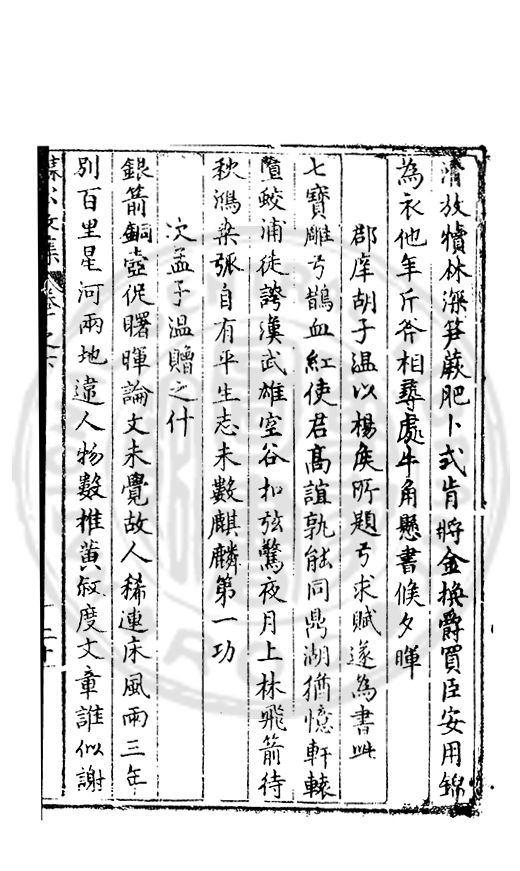 清放犢林深笋蕨肥卜式肯將金換爵買臣安用錦
為衣他年斤斧相尋處牛角懸書候夕暉
郡庠胡子溫以楊侯所題弓求賦遂為書此
七寶雕弓鵲血紅使君高誼孰能同鼎湖猶憶軒轅
墮鮫浦徒誇漢武雄空谷扣弦驚夜月上林飛箭待
秋鴻桑弧自有平生志未數麒麟第一功
次孟子溫贈之什
銀箭銅壺促曙暉論文未覺故人稀連床風雨三年
別百里星河兩地違人物數推黃叔度文章誰似謝
文集 卷十之下